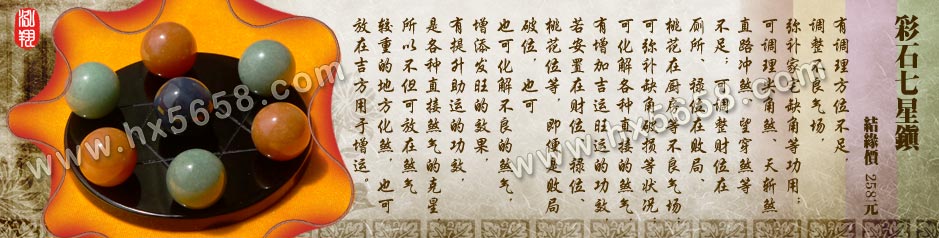 彩石七星鎮
結緣價 258元
有调理方位不足，
调整不良气场，
弥补家宅缺角等功用；
可调理壁角煞、天斩煞
直路冲煞、望穿煞等
不足；可调整财位在
厕所、禄位在败局、
桃花在厨房等不良气场
可弥补缺角破损等状况
可化解各种直接的煞气
有增加吉运旺运的功效
若安置在财位、禄位、
桃花位等，即便是败局
破位，也可
也可化解不良的煞气，
增添发旺的效果，
有提升助运的功效，
是各种直接煞气的克星
所以不但可放在煞气
较重的地方化煞，也可
放在吉方用于增运。
泓翔
www.hx5658.com
www.hx5658.com
www.hx5658.com
www.hx5658.com